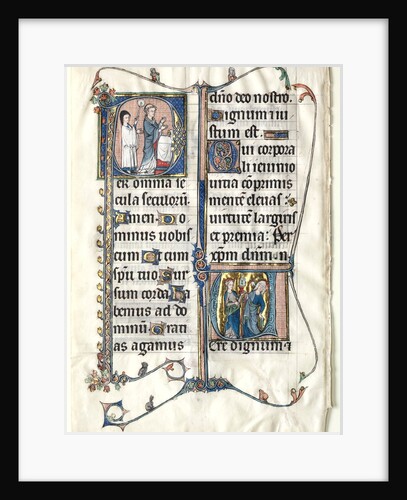 Per omnia se
cula seculorū.
Amen. Do
minus vobis
cum Et cum
spū tuo Sur
sum corda Ha
bemus ad do
minū Grati
as agamus
dn̄o deo nostro.
Dignum iu
stum est.
Qui corpora
li ieiunio
uitia cōprimis
mentē eleuas
uirtutē largiris
et premia: Per
xp̄m dn̄m n
Vere dignum